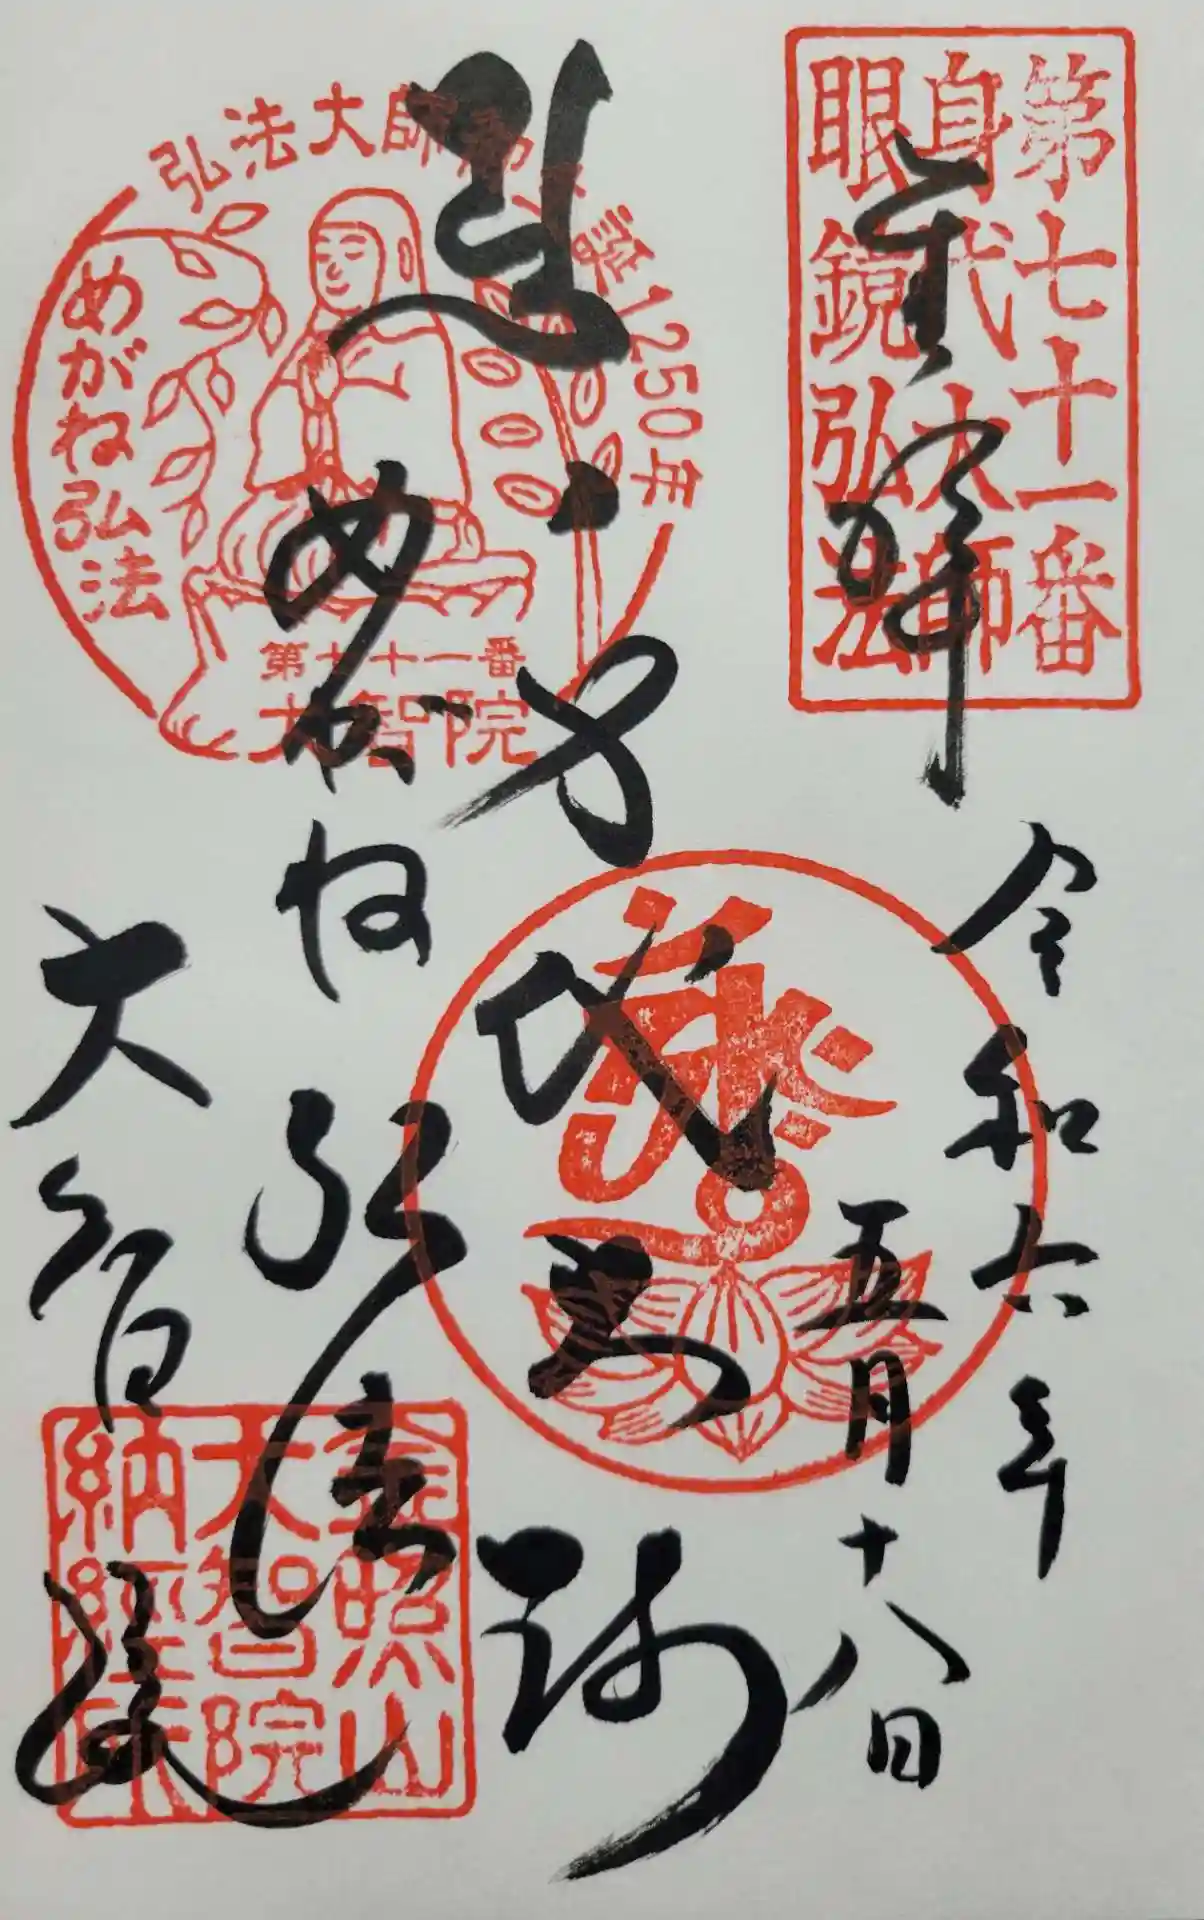 第七十一番
身代大師
眼鏡弘法
奉拝
令和六年
五月十八日
身代大師
めがね弘法
大智院
弘法大師御生誕1250年
めがね弘法
第七十一番
大智院
金照山
大智院
納経所